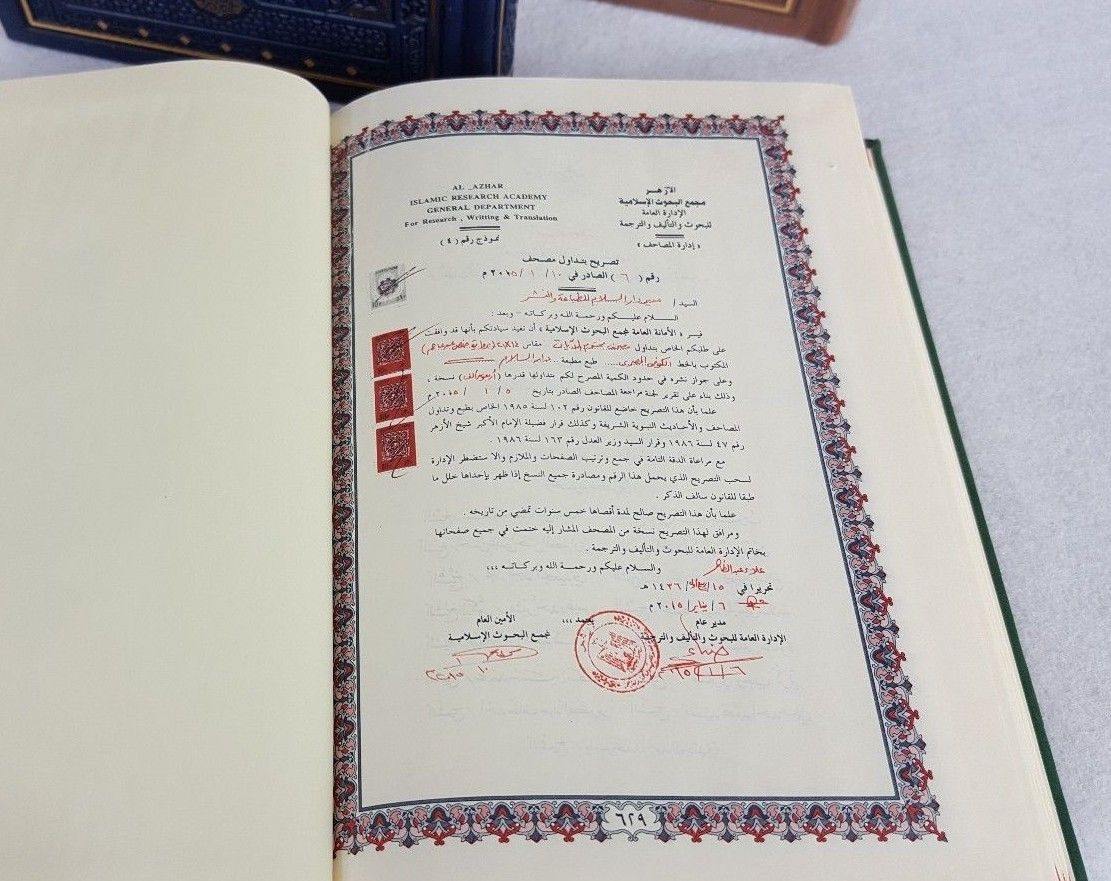 AL _AZHAR
ISLAMIC RESEARCH ACADEMY
GENERAL DEPARTMENT
For Research , Writting & Translation
الأزهر
مجمع البحوث الإسلامية
الإدارة العامة
للبحوث والتأليف والترجمة
« إدارة المصاحف »
نموذج رقم ( ٤ )
تصريح بتداول مصحف
رقم ( ٦ ) الصادر في ١٠ / ١ / ٢٠١٥ م
السيد / مدير دار السلام للطباعة والنشر
السلام عليكم ورحمة الله وبركاته - وبعد :
« الأمانة العامة لمجمع البحوث الإسلامية » أن تفيد سيادتكم بأنها قد وافقت
على طلبكم الخاص بتداول مصحف مقاس
المكتوب بالخط الكوفى المصرى ..... طبع مطبعة .. دار السلام
وعلى جواز نشره في حدود الكمية المصرح لكم بتداولها قدرها ( ألف ) نسخة ،
وذلك بناء على تقرير لجنة مراجعة المصاحف الصادر بتاريخ ٥ / ١ / ٢٠١٥ م
علما بأن هذا التصريح خاضع للقانون رقم ١٠٢ لسنة ١٩٨٥ الخاص بطبع وتداول
المصاحف والأحاديث النبوية الشريفة وكذلك قرار فضيلة الإمام الأكبر شيخ الأزهر
رقم ٤٧ لسنة ١٩٨٦ وقرار السيد وزير العدل رقم ١٦٣ لسنة ١٩٨٦ .
مع مراعاة الدقة التامة في جمع وترتيب الصفحات والملازم والا ستضطر الإدارة
لسحب التصريح الذي يحمل هذا الرقم ومصادرة جميع النسخ إذا ظهر بإحداها خلل ما
طبقا للقانون سالف الذكر .
علما بأن هذا التصريح صالح لمدة أقصاها خمس سنوات تمضي من تاريخه .
ومرافق لهذا التصريح نسخة من المصحف المشار إليه ختمت في جميع صفحاتها
بخاتم الإدارة العامة للبحوث والتأليف والترجمة .
والسلام عليكم ورحمة الله وبركاته ،،،
علاء عبد الظاهر
تحريرا في ١٥ / / ١٤٣٦ هـ
٦ / يناير / ٢٠١٥ م
مدير عام
الإدارة العامة للبحوث والتأليف والترجمة
يعتمد ،،،
الأمين العام
لمجمع البحوث الإسلامية
٦٢٩